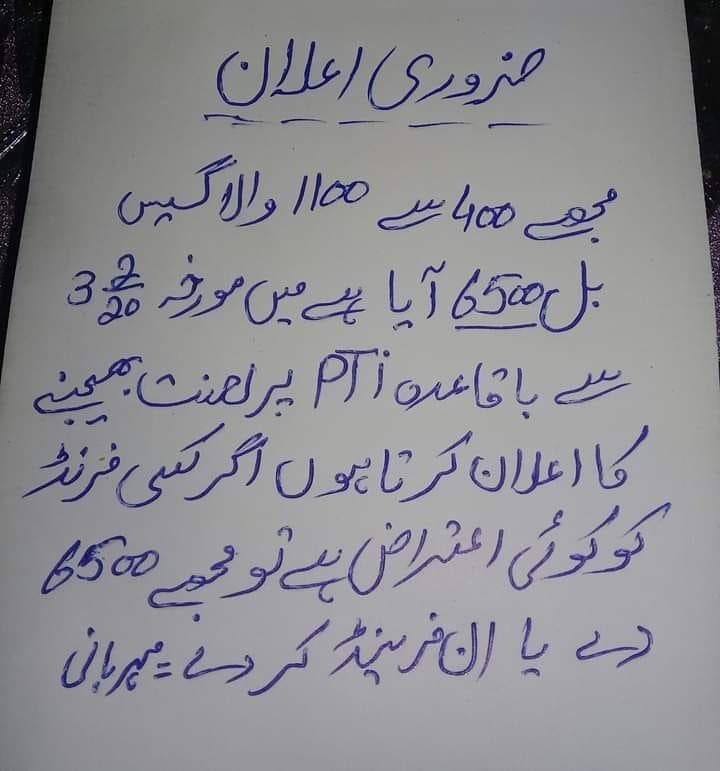 ضروری اعلان
مجھے 400 سے 1100 والا گیس
بل 6500 آیا ہے میں مورخہ 3 2/20
سے باقاعدہ PTi پر لعنت بھیجنے
کا اعلان کرتا ہوں اگر کسی فرنڈ
کو کوئی اعتراض ہے تو مجھے 6500
دے یا ان فرینڈ کر دے = مہربانی